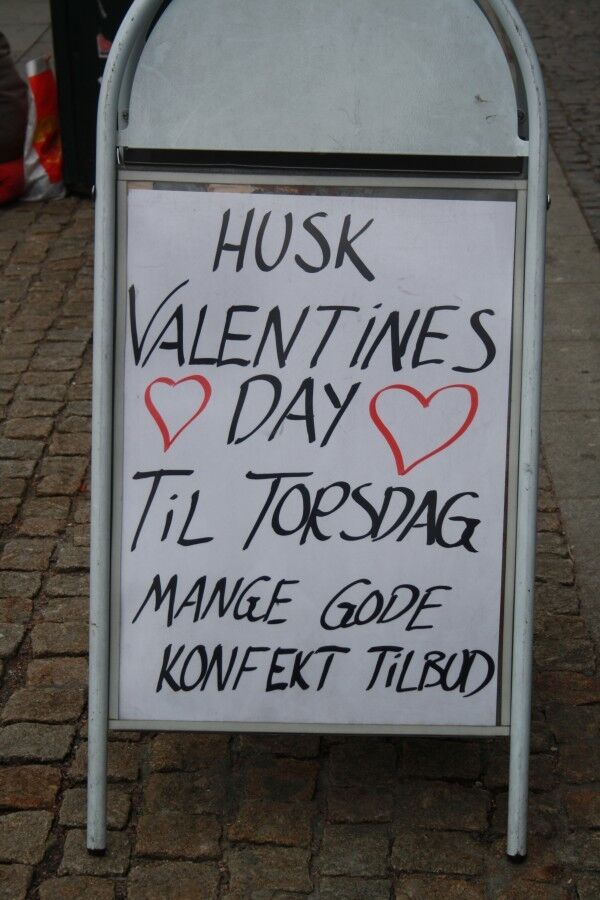 HUSK
VALENTiNES
DAY
TiL TORSDAG
MANGE GODE
KONFEKT TiLBUD